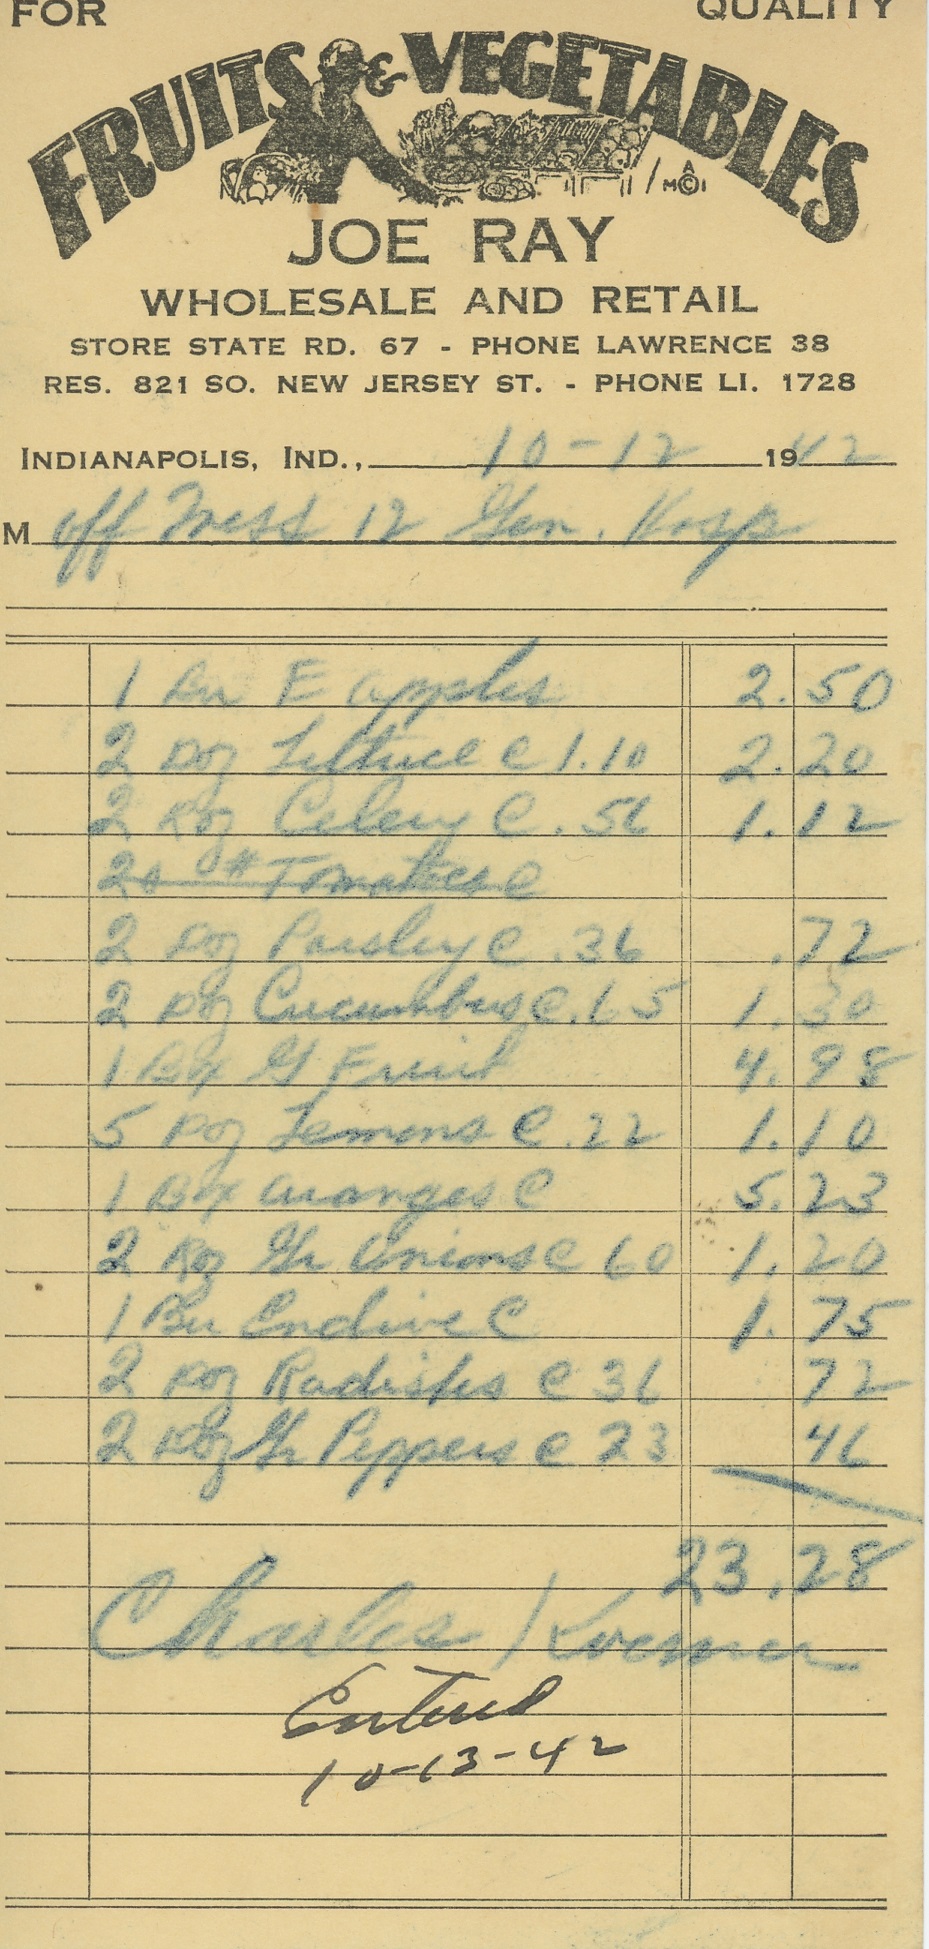 FOR QUALITY
FRUITS & VEGETABLES
JOE RAY
WHOLESALE AND RETAIL
STORE STATE RD. 67 - PHONE LAWRENCE 38
RES. 821 SO. NEW JERSEY ST. - PHONE LI. 1728
INDIANAPOLIS, IND., 10-12 1942
M off Mess 12 Gen. Hosp
1 Bu E apples 2.50
2 Doz Lettuce C 1.10 2.20
2 Doz Celery C .56 1.12
2 # Tomatoes C
2 Doz Parsley C .36 .72
2 Doz Cucumbers C .65 1.30
1 Bx G Fruit 4.98
5 Doz Lemons C .22 1.10
1 Bx oranges C 5.23
2 Doz Gr Onions C 60 1.20
1 Bu Endive C 1.75
2 Doz Radishes C 36 72
2 Doz Gr Peppers C 23 46
23.28
Charles
Entered
10-13-42